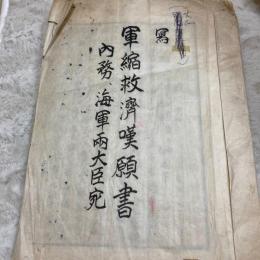 寫
軍縮救濟嘆願書
內務、海軍兩大臣宛